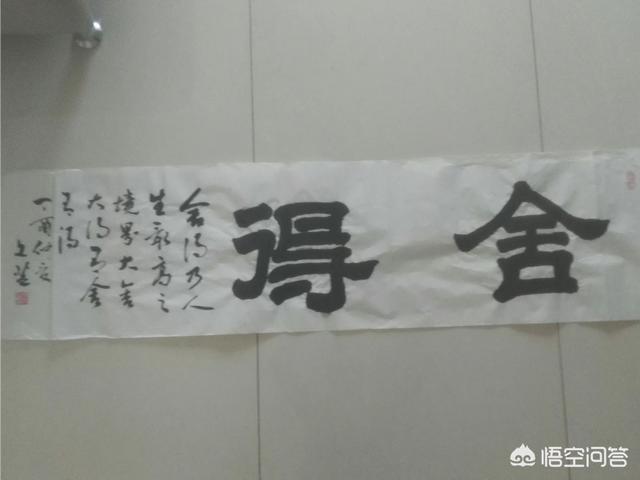 舍得
舍得乃人
生最高之
境界大舍
大得有舍
有得
丁酉仲夏
悟空问答